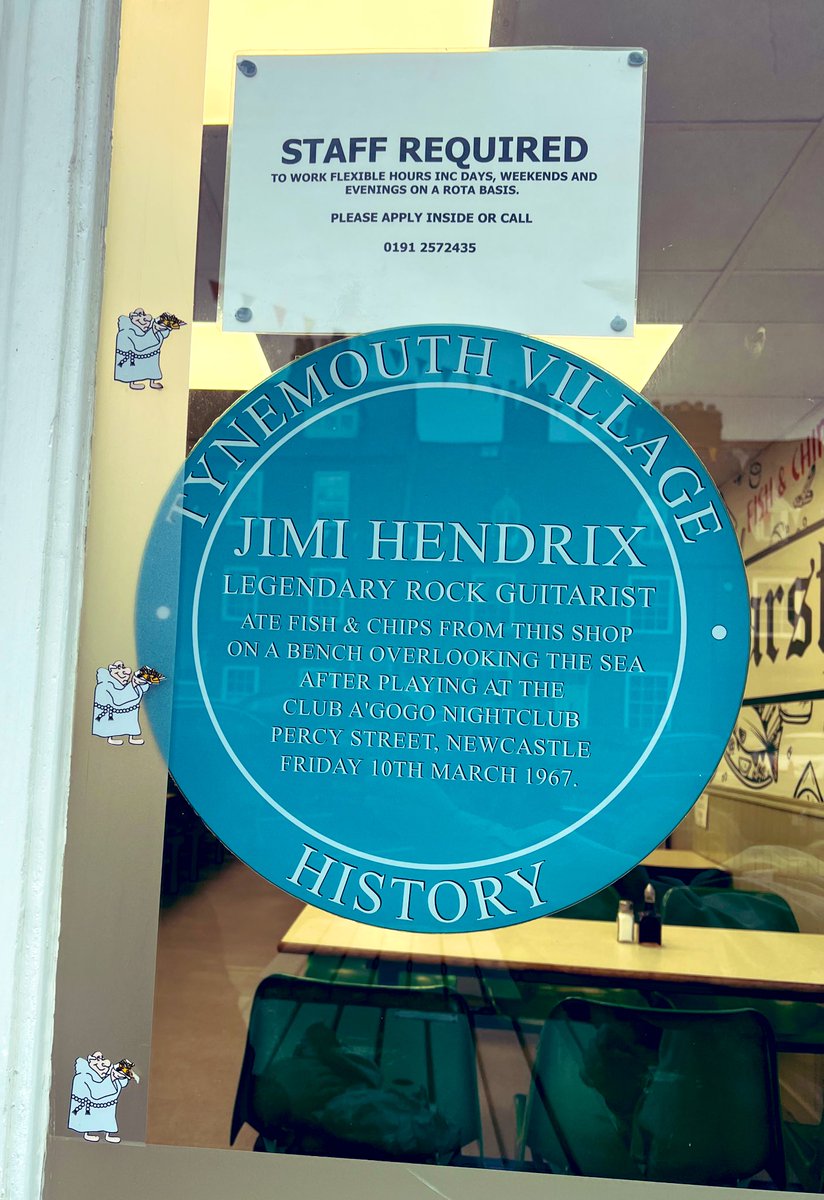 STAFF REQUIRED
TO WORK FLEXIBLE HOURS INC DAYS, WEEKENDS AND
EVENINGS ON A ROTA BASIS.
PLEASE APPLY INSIDE OR CALL
0191 2572435
TYNEMOUTH VILLAGE
JIMI HENDRIX
LEGENDARY ROCK GUITARIST
ATE FISH & CHIPS FROM THIS SHOP
ON A BENCH OVERLOOKING THE SEA
AFTER PLAYING AT THE
CLUB A'GOGO NIGHTCLUB
PERCY STREET, NEWCASTLE
FRIDAY 10TH MARCH 1967.
HISTORY
FISH & CHIP